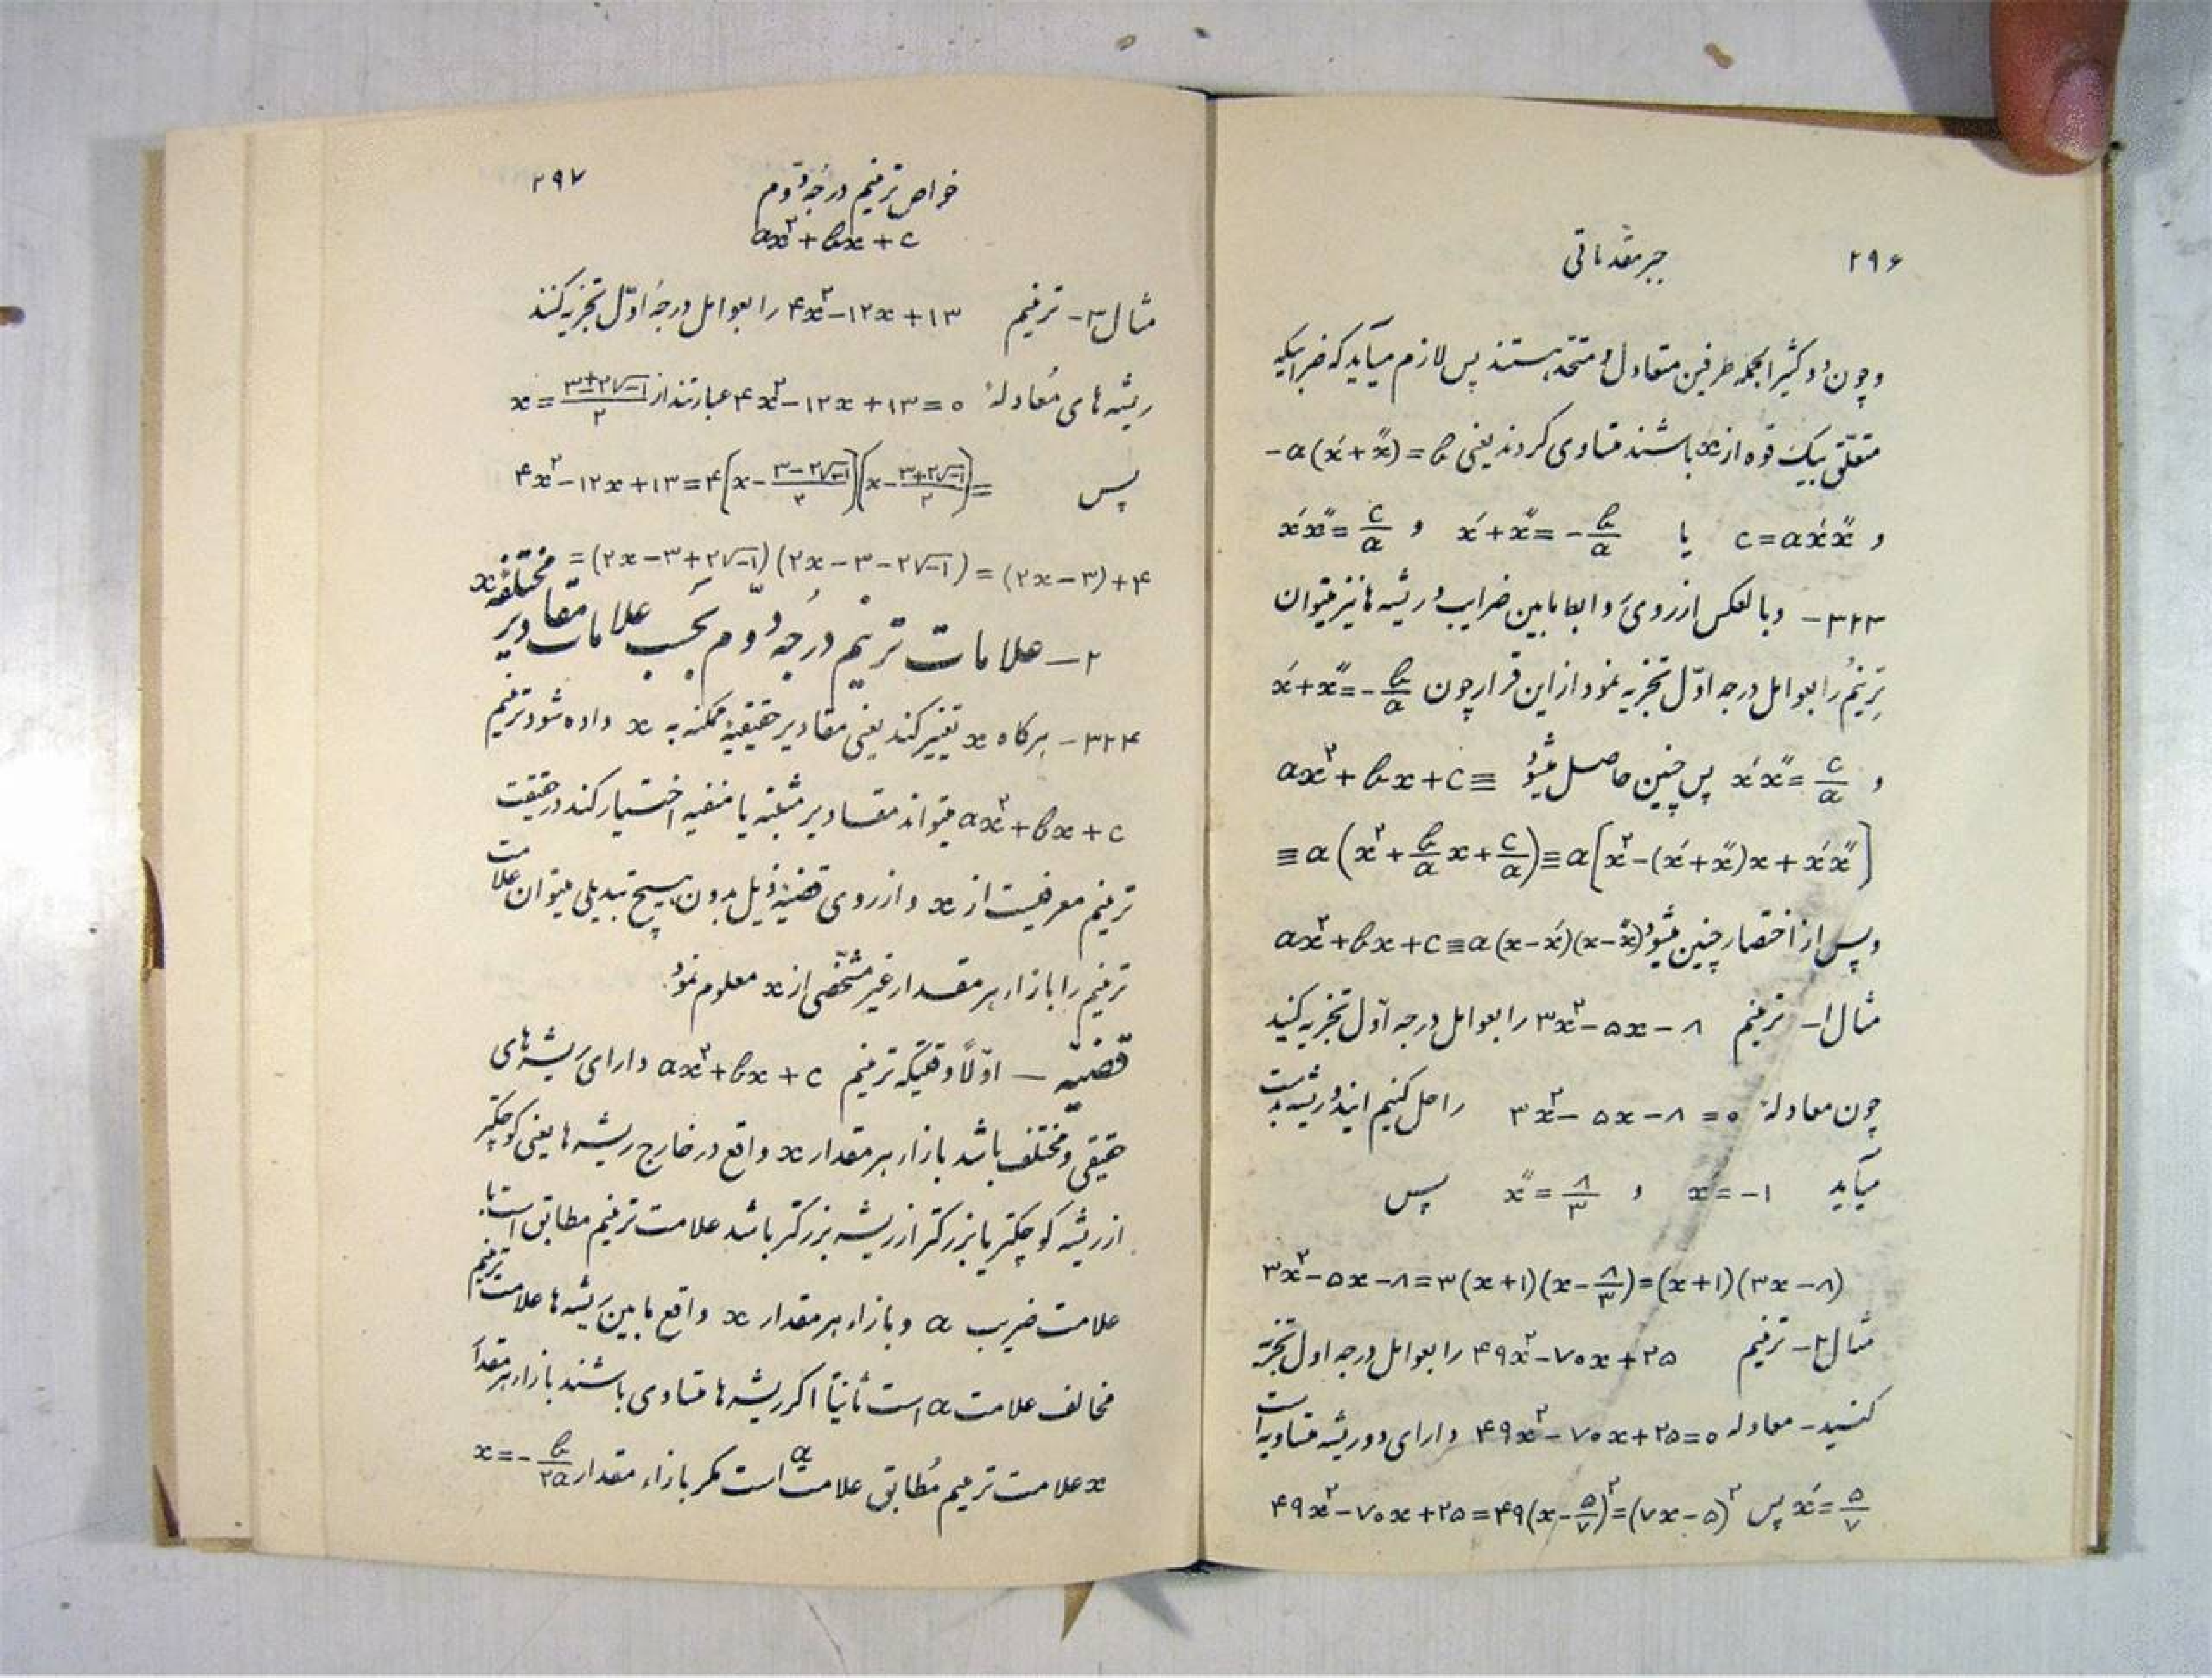 ۲۹۶ جبر مقدماتی
و چون دو کثیرالجمله طرفین متعادل و متحد هستند پس لازم میآید که ضرایبیکه
متعلق بیک قوه از x باشند متساوی گردند یعنی -a(x′+x″)=b
و c=ax′x″ یا x′+x″=-b/a و x′x″=c/a
۳۲۳- و بالعکس از روی روابط مابین ضرایب و ریشه ها نیز میتوان
ترینم را بعوامل درجه اوّل تجزیه نمود از این قرار چون x′+x″=-b/a
و x′x″=c/a پس چنین حاصل میشود ax²+bx+c≡
≡a(x²+b/a x+c/a)≡a[x²-(x′+x″)x+x′x″]
و پس از اختصار چنین میشود ax²+bx+c≡a(x-x′)(x-x″)
مثال ۱- ترینم ۳x²-۵x-۸ را بعوامل درجه اوّل تجزیه کنید
چون معادلهٔ ۳x²-۵x-۸=۰ را حل کنیم این دو ریشه بدست
میآید x′=-۱ و x″=۸/۳ پس
۳x²-۵x-۸=۳(x+۱)(x-۸/۳)=(x+۱)(۳x-۸)
مثال ۲- ترینم ۴۹x²-۷۰x+۲۵ را بعوامل درجه اول تجزیه
کنید- معادله ۴۹x²-۷۰x+۲۵=۰ دارای دو ریشه متساویه است
x′=۵/۷ پس ۴۹x²-۷۰x+۲۵=۴۹(x-۵/۷)²=(۷x-۵)²
خواص ترینم درجهٔ دوّم ۲۹۷
ax²+bx+c
مثال ۳- ترینم ۴x²-۱۲x+۱۳ را بعوامل درجهٔ اوّل تجزیه کنند
ریشه های مُعادلهٔ ۴x²-۱۲x+۱۳=۰ عبارتند از x=(۳±۲√-۱)/۲
پس ۴x²-۱۲x+۱۳=۴[x-(۳-۲√-۱)/۲][x-(۳+۲√-۱)/۲]=
=(۲x-۳+۲√-۱)(۲x-۳-۲√-۱)=(۲x-۳)+۴
۲- علامات ترینم درجهٔ دوّم بحسب علامات مقادیر مختلفهٔ x
۳۲۴- هرگاه x تغییر کند یعنی مقادیر حقیقیهٔ ممکنه به x داده شود ترینم
ax²+bx+c میتواند مقادیر مثبته یا منفیه اختیار کند در حقیقت
ترینم معرفیست از x و از روی قضیهٔ ذیل بدون هیچ تبدیلی میتوان علامت
ترینم را بازاء هر مقدار غیر مشخّصی از x معلوم نمود.
قضیّه — اوّلاً وقتیکه ترینم ax²+bx+c دارای ریشه های
حقیقی و مختلف باشد بازاء هر مقدار x واقع در خارج ریشه ها یعنی کوچکتر
از ریشه کوچکتر یا بزرگتر از ریشه بزرگتر باشد علامت ترینم مطابق است با
علامت ضریب a و بازاء هر مقدار x واقع مابین ریشه ها علامت ترینم
مخالف علامت a است ثانیاً اگر ریشه ها متساوی باشند بازاء هر مقدار
x علامت ترینم مُطابق علامت a است مگر بازاء مقدار x=-b/۲a